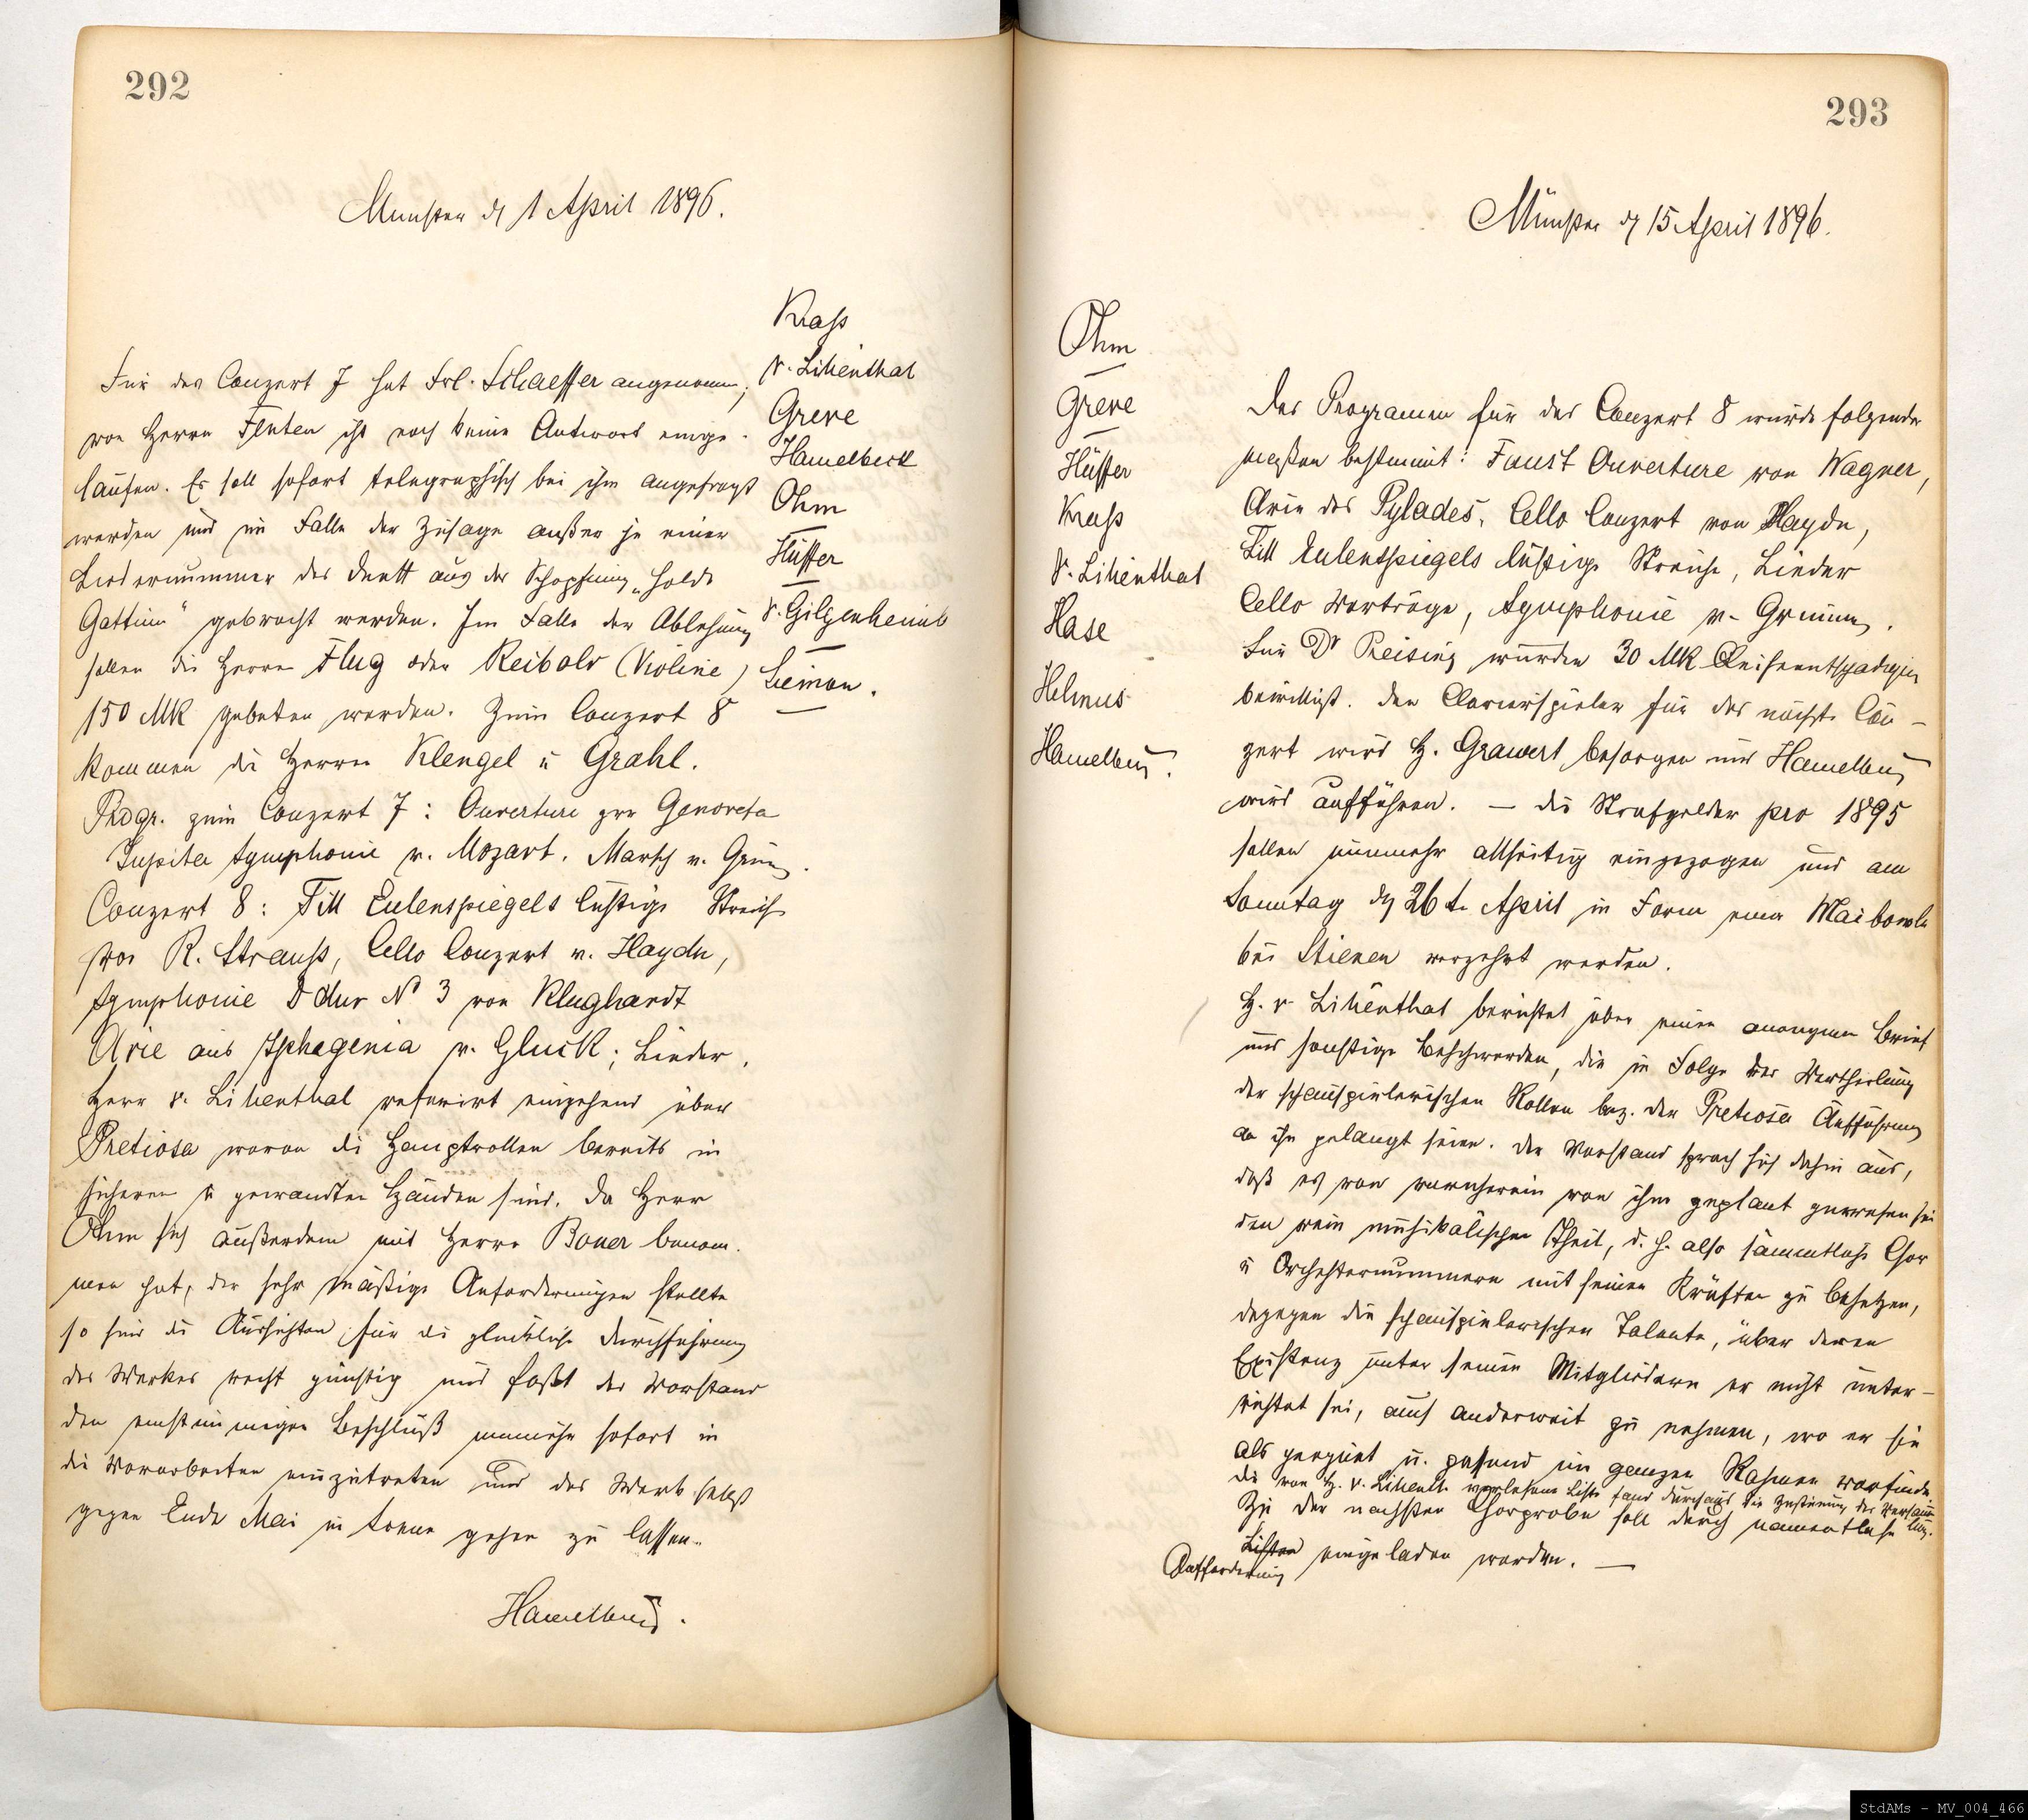 292
Münster dſ 1 April 1896.
Krass
v. Lilienthal
Greve
Hamelbeck
Ohm
Hüffer
v. Gilgenheimb
Simon.
Für das Conzert 7 hat Frl. Schaeffer angenomn;
von Herrn Flinten ist noch keine Antwort einge-
laufen. Es soll sofort telegraphisch bei ihm angefragt
werden und im Falle der Zusage außer je einer
Liedernummer das Duett aus der Schöpfung „Holde
Gattin“ gebracht werden. Im Falle der Ablehnung
sollen die Herren Flug oder Reibold (Violine)
150 Mk gebeten werden. Zum Conzert 8
kommen die Herren Klengel u Grahl.
Progr. zum Conzert 7: Ouverture zur Genovefa
Jupiter Symphonie v. Mozart. Marsch v. Grim.
Conzert 8: Till Eulenspiegels lustige Streiche
von R. Strauss, Cello Conzert v. Haydn,
Symphonie D dur No 3 von Klughardt
Arie aus Iphegenia v. Gluck; Lieder.
Herr v. Lilienthal referirt eingehend über
Pretiosa wovon die Hauptrollen bereits in
sicheren u gewandten Händen sind. Da Herr
Ohm sich außerdem mit Herrn Boner benom-
men hat, der sehr mäßige Anforderungen stellte
so sind die Aussichten für die glückliche Durchführung
des Werkes recht günstig und faßt der Vorstand
den einstimmigen Beschluß nunmehr sofort in
die Vorarbeiten einzutreten und das Werk selbst
gegen Ende Mai in scene gehen zu lassen.
293
Münster dſ 15 April 1896.
Ohm
Greve
Hüffer
Krass
v. Lilienthal
Hase
Helmus
Das Programm für das Conzert 8 wurde folgender
maßen bestimmt: Faust Ouverture von Wagner,
Arie des Pylades, Cello Conzert von Haydn,
Till Eulenspiegels lustige Streiche, Lieder
Cello Vorträge, Symphonie v. Grimm.
Für Dr Reising wurden 30 Mk Reiseentschädigung
bewilligt. Den Clavierspieler für das nächste Con-
zert wird H. Grawert besorgen und
wird aufführen. — Die Strafgelder pro 1895
sollen nunmehr allseitig eingezogen und am
Sonntag dſ 26 t. April in Form einer Maibowle
bei Stienen verzehrt werden.
H. v Lilienthal berichtet über einen anonymen Brief
und sonstige Beschwerden, die in Folge der Vertheilung
der schauspielerischen Rollen bez. der Pretiosa Aufführung
an ihn gelangt seien. Der Vorstand sprach sich dahin aus,
daß es von vornherein von ihm geplant gewesen sei
den rein musikalischen Theil, d. h. also sämmtliche Chor
u Orchesternummern mit seinen Kräften zu besetzen,
dagegen die schauspielerischen Talente, über deren
Existenz unter seinen Mitgliedern er nicht unter-
richtet sei, auch anderweit zu nehmen, wo er sie
als geeignet u. passend im ganzen Rahmen vorfinde
Die von H. v. Lilienth. vorgelesene Liste fand durchaus die Zustimmung der Versamm
lung.
Zu der nächsten Chorprobe soll durch namentliche
Listen Aufforderung eingeladen werden. —
StdAMs - MV_004_466